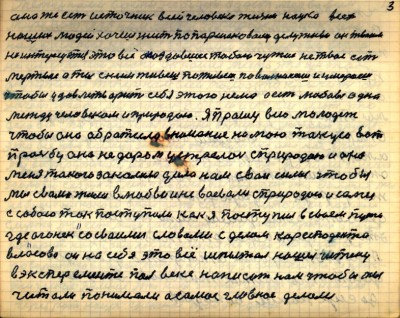 3
она же есть источник всей человека жизни наука всех
наших людей хочешь жить по паршековому должны он такая
не интересует это всё создавшее тобою чужие не твое есть
мертвое а ты с ним живешь потеешь поволнаешься и умираешь
чтобы удовлетворить себя этого немо есть любовь одна
между человеком и природою. Я прошу всю молодежь
чтобы она обратила внимание на мою такую вот
просьбу она недаром устрелась с природою и она
меня такого закалила дало нам свои силы чтобы
мы свами жили в любови не воевали с природою и сами
с собою так поступали как я поступил в своем пути
где огонек со своими словами с делом корреспондента
Власова он на себя это всё испытал нашу истину
в эксперементе пол века написал нам чтобы мы
читали понимали а самое главное делали